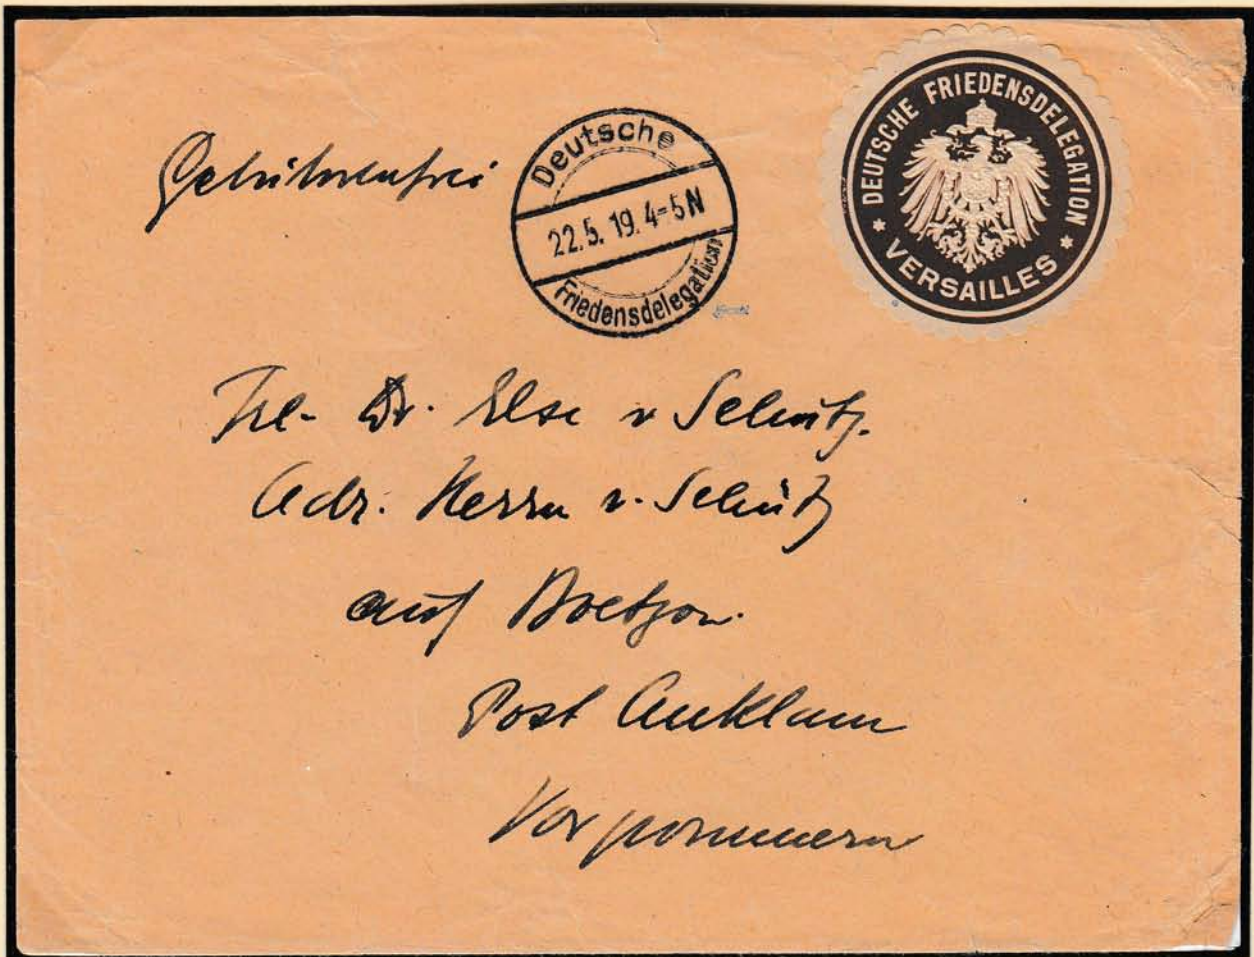 Gebührenfrei
Deutsche
22.5.19.4-5N
Friedensdelegation
DEUTSCHE FRIEDENSDELEGATION
* VERSAILLES *
Frl. Dr. Else v Schütz.
Adr. Herrn v. Schütz
auf
Post Anklam
Vorpommern